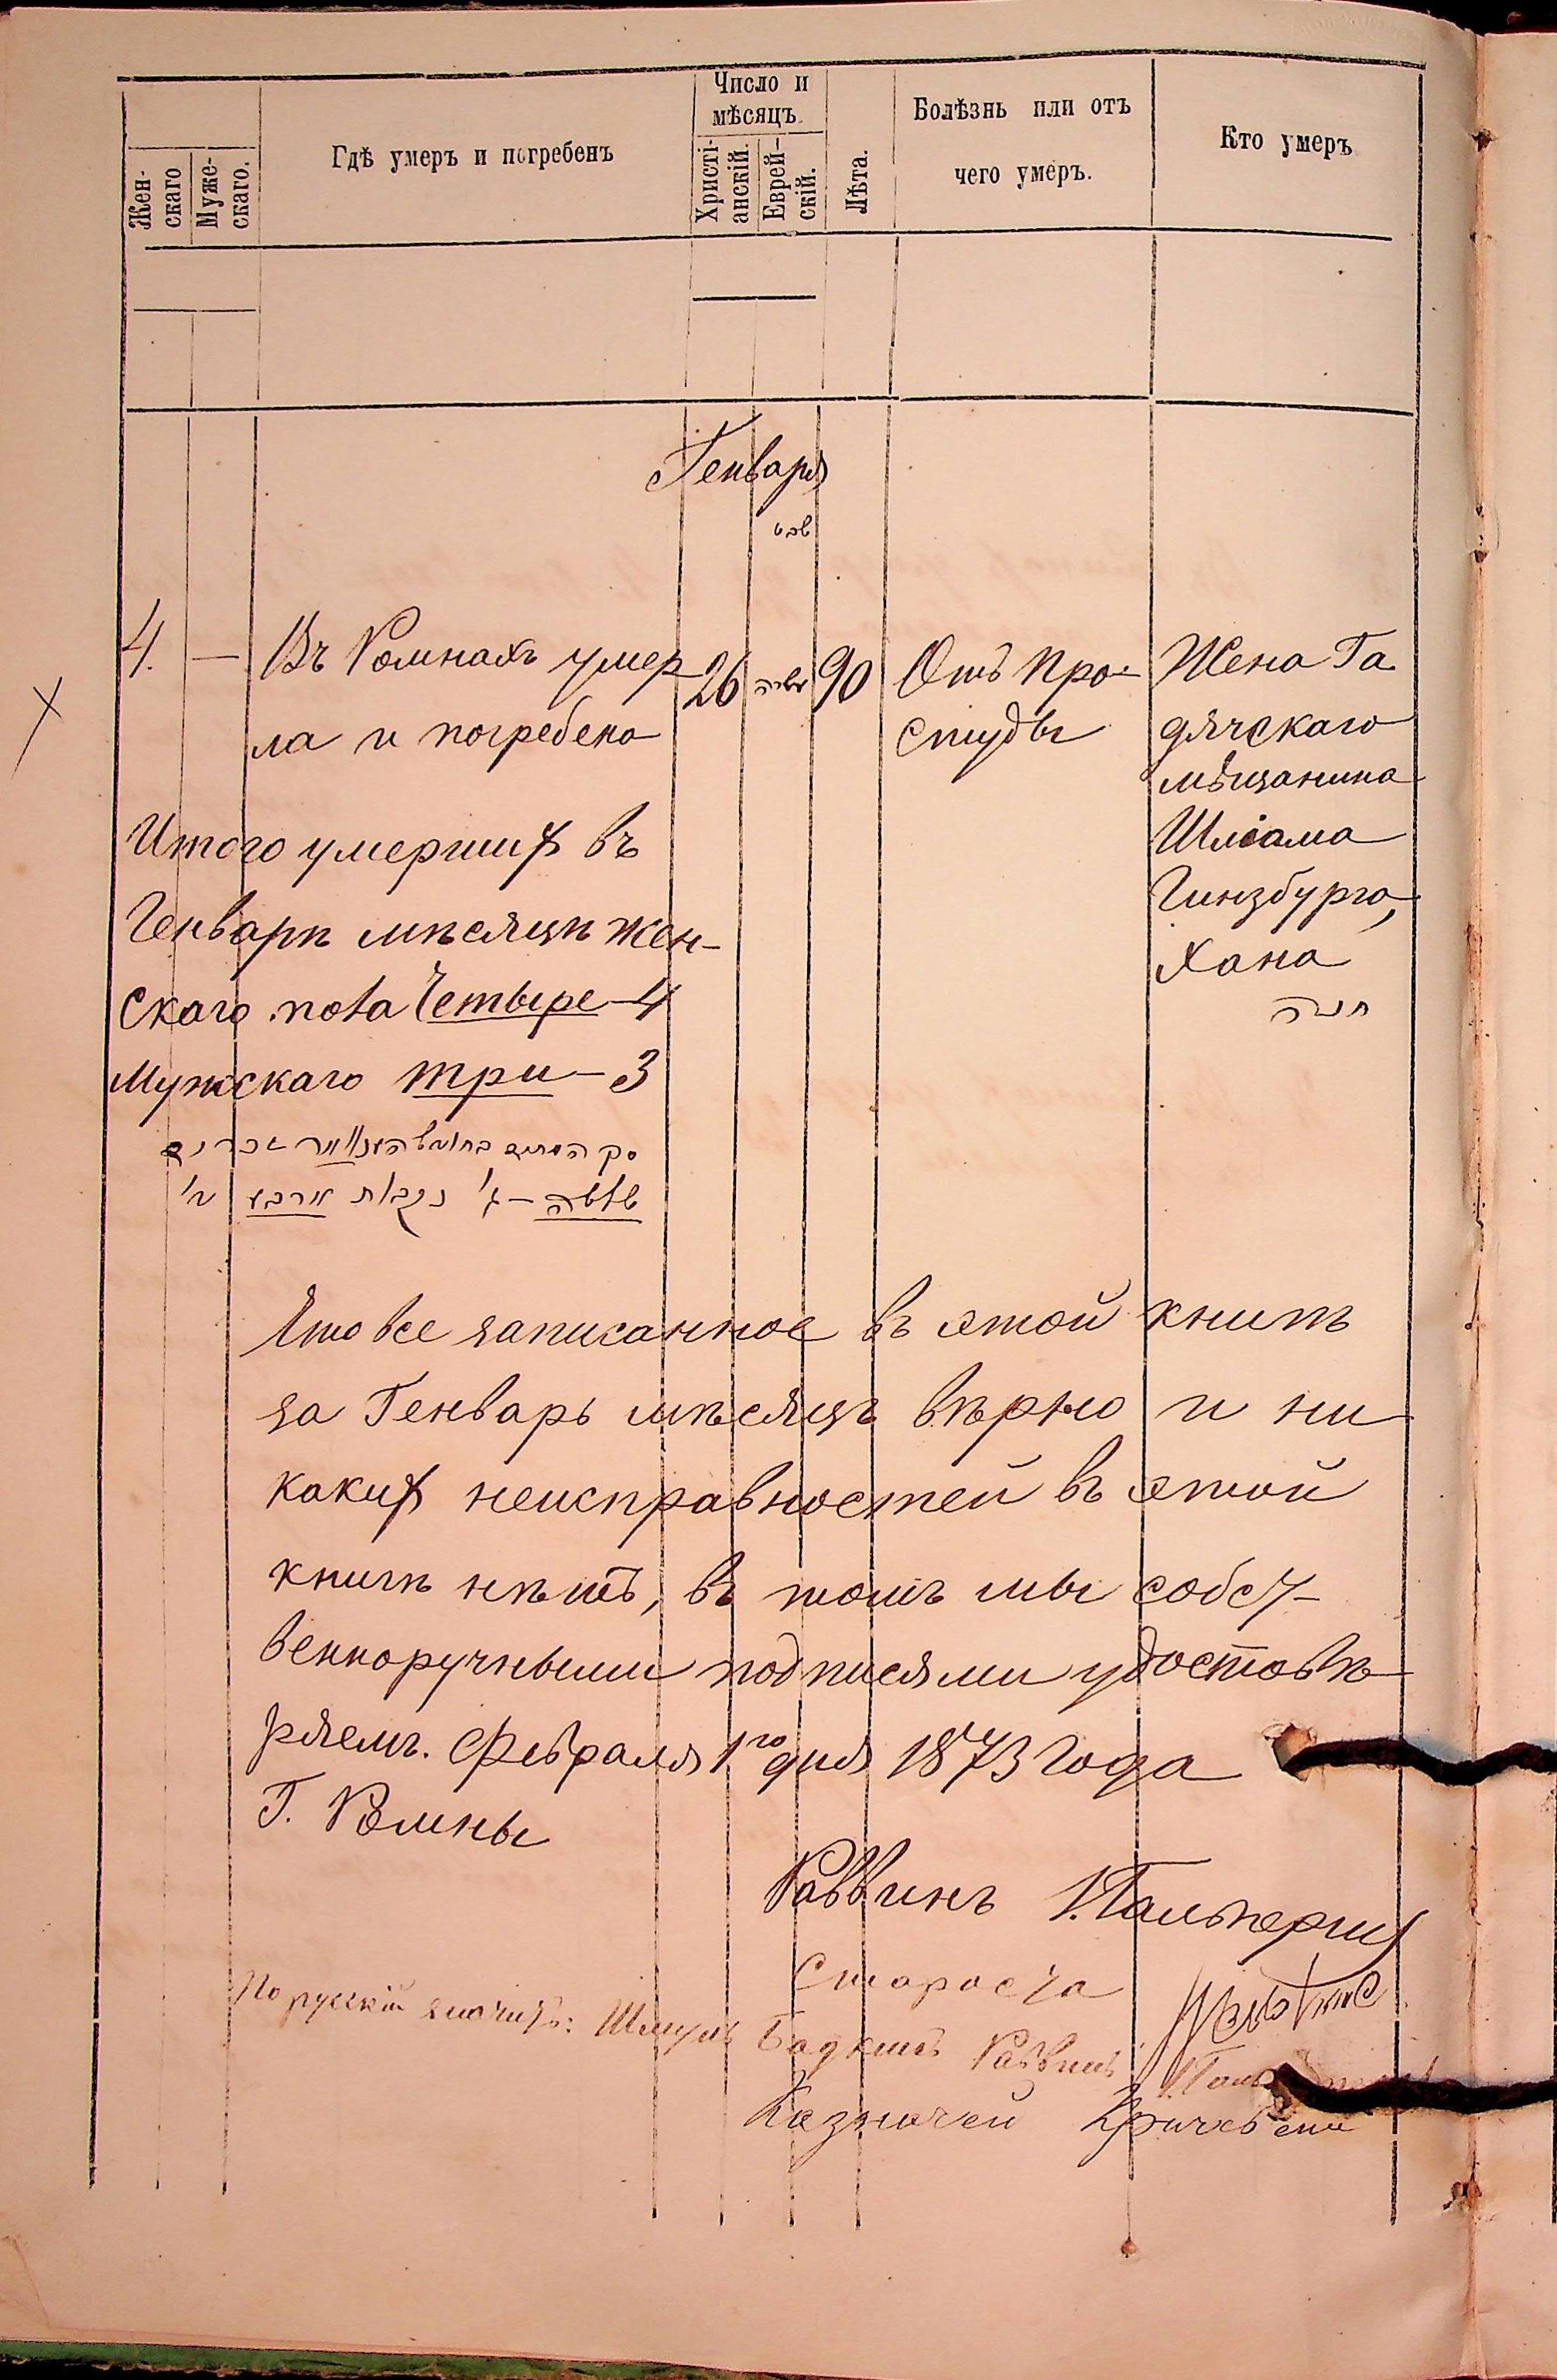 Жен-
скаго
Муже-
скаго.
Гдѣ умеръ и погребенъ
Число и
мѣсяцъ.
Христі-
анскій.
Еврей-
скій.
Лѣта.
Болѣзнь или отъ
чего умеръ.
Кто умеръ
Генваря
שבט
4. — Въ Ромнахъ умер
ла и погребена
26
90
Отъ про-
студы
Жена Га
дячскаго
мѣщанина
Шліама
Гинзбурга,
Хана
חנה
Итого умершихъ въ
Генварѣ мѣсяцѣ жен-
скаго пола Четыре-4
Мужскаго три-3
שלשה - ג' נקבות ארבע ד'
Что все записанное въ этой книгѣ
за Генварь мѣсяцъ вѣрно и ни
какихъ неисправностей въ этой
книгѣ нѣтъ, въ томъ мы собст-
венноручными подписями удостовѣ-
ряемъ. Февраля 1го дня 1873 года
Г. Ромны
Раввинъ
Староста
По русски значитъ: Шмуль Раввинъ
Казначей